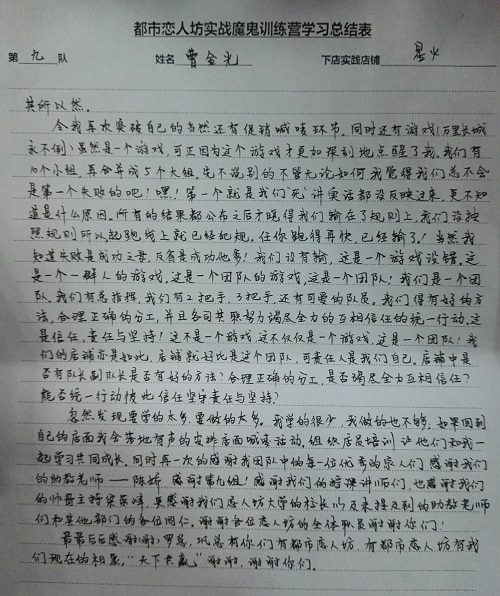 都市恋人坊实战魔鬼训练营学习总结表
第 九 队 姓名 曹金光 下店实践店铺 星火
其所以然。
令我再次突破自己的当然还有促销喊嗓环节。同时还有游戏(万里长城
永不倒)虽然是一个游戏,可正因为这个游戏才更加深刻地点醒了我。我们有
10个小组,再合并成5个大组,先不说别的不管无论如何我觉得我们总不会
是第一个失败的吧!嘿!第一个就是我们“死”讲实话都没反映过来,更不知
道是什么原因。所有的结果都公布之后才晓得我们输在了规则上,我们没按
照规则所以起跑线上就已经犯规。任你跑得再快,已经输了!当然我
知道失败是成功之母,反省是成功他爹!我们没有输,这是一个游戏没错,这
是一个一群人的游戏,这是一个团队的游戏,这是一个团队!我们是一个团
队,我们有总指挥,我们有2把手,3把手,还有可爱的队员。我们得有好的方
法,合理正确的分工,并且各司其职努力竭尽全力的互相信任的统一行动,这
是信任,责任与坚持!这不是一个游戏,这不仅仅是一个游戏,这是一个团队!我
们的店铺亦是如此,店铺就好比是这个团队,可责任人是我们自己。店铺中是
否有队长副队长是否有好的方法?合理正确的分工,是否竭尽全力互相信任?
能否统一行动彼此信任坚守责任与坚持?
忽然发现要学的太多,要做的太多。我学的很少,我做的也不够。如果回到
自己的店面我会落地有声的安排店面喊嗓活动,组织店员培训 让他们和我一
起学习共同成长。同时再一次的感谢我团队中的每一位优秀的家人们 感谢我们
的助教老师——陈娇 感谢第九组!感谢我们的授课讲师们,也感谢我们
的帅哥主持梁荣峰,更感谢我们恋人坊大学的校长以及未提及到的助教老师
们和其他部门的各位同仁,谢谢各位恋人坊的全体职员谢谢你们!
最最后后感谢谢罗总,巩总有你们有都市恋人坊,有都市恋人坊有我
们现在的相聚。“天下共赢”谢谢,谢谢你们。